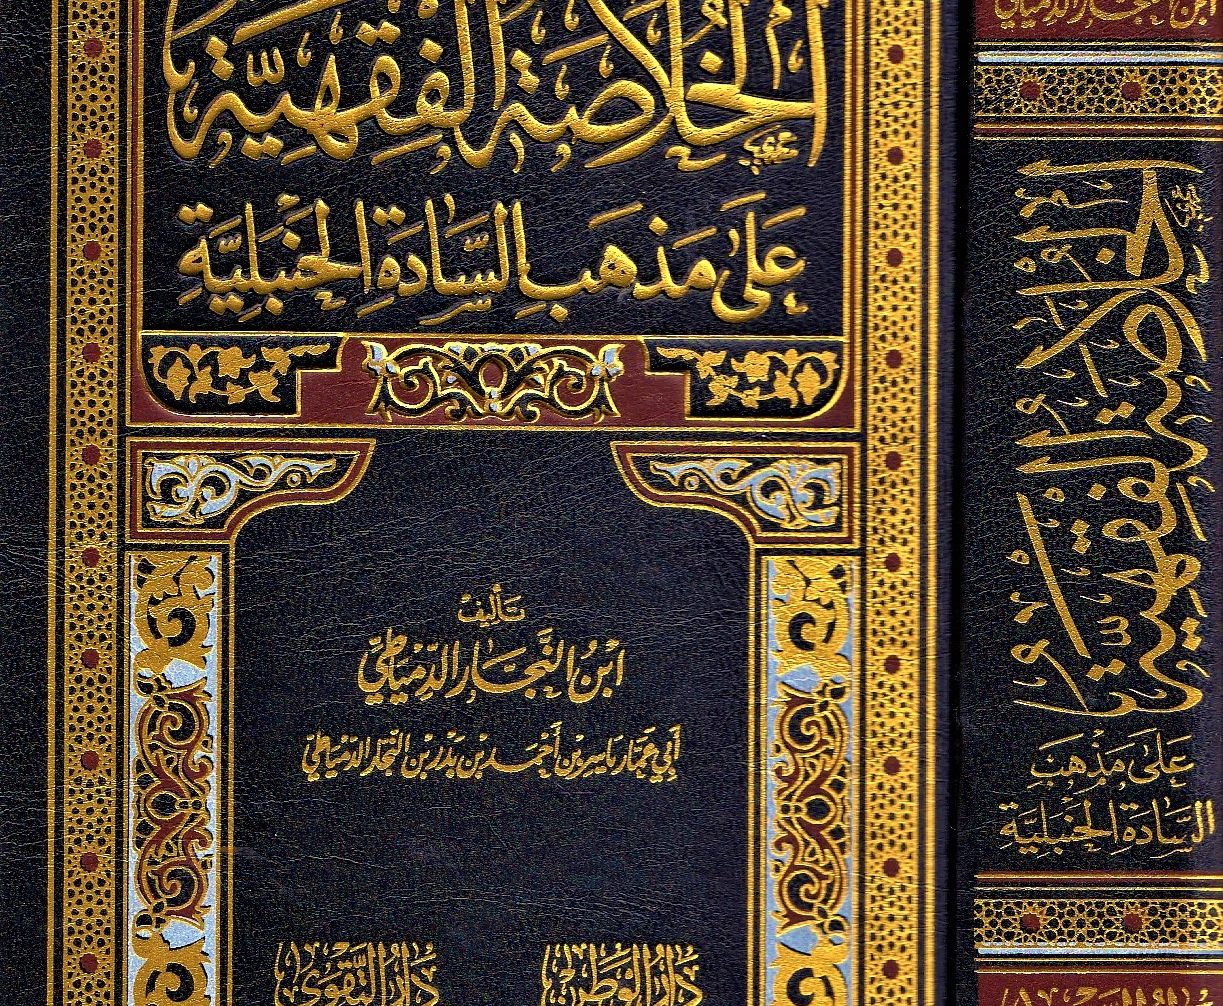 الخُلَاصَةُ الفِقْهِيَّةُ
عَلَى مَذْهَبِ السَّادَةِ الحَنْبَلِيَّةِ
تَأليف
ابْنُ النَّجَّارِ الدِّمْيَاطِيِّ
أَبِي عَمَّار يَاسِر بْنِ أَحْمَد بْنِ بَدْرِ بْنِ النَّجَّارِ الدِّمْيَاطِيِّ
دَارُ الوَطَنِ
دَارُ التَّقْوَى
ابن النجار الدمياطي
الخُلَاصَةُ الفِقْهِيَّةُ
عَلَى مَذْهَبِ
السَّادَةِ الحَنْبَلِيَّةِ